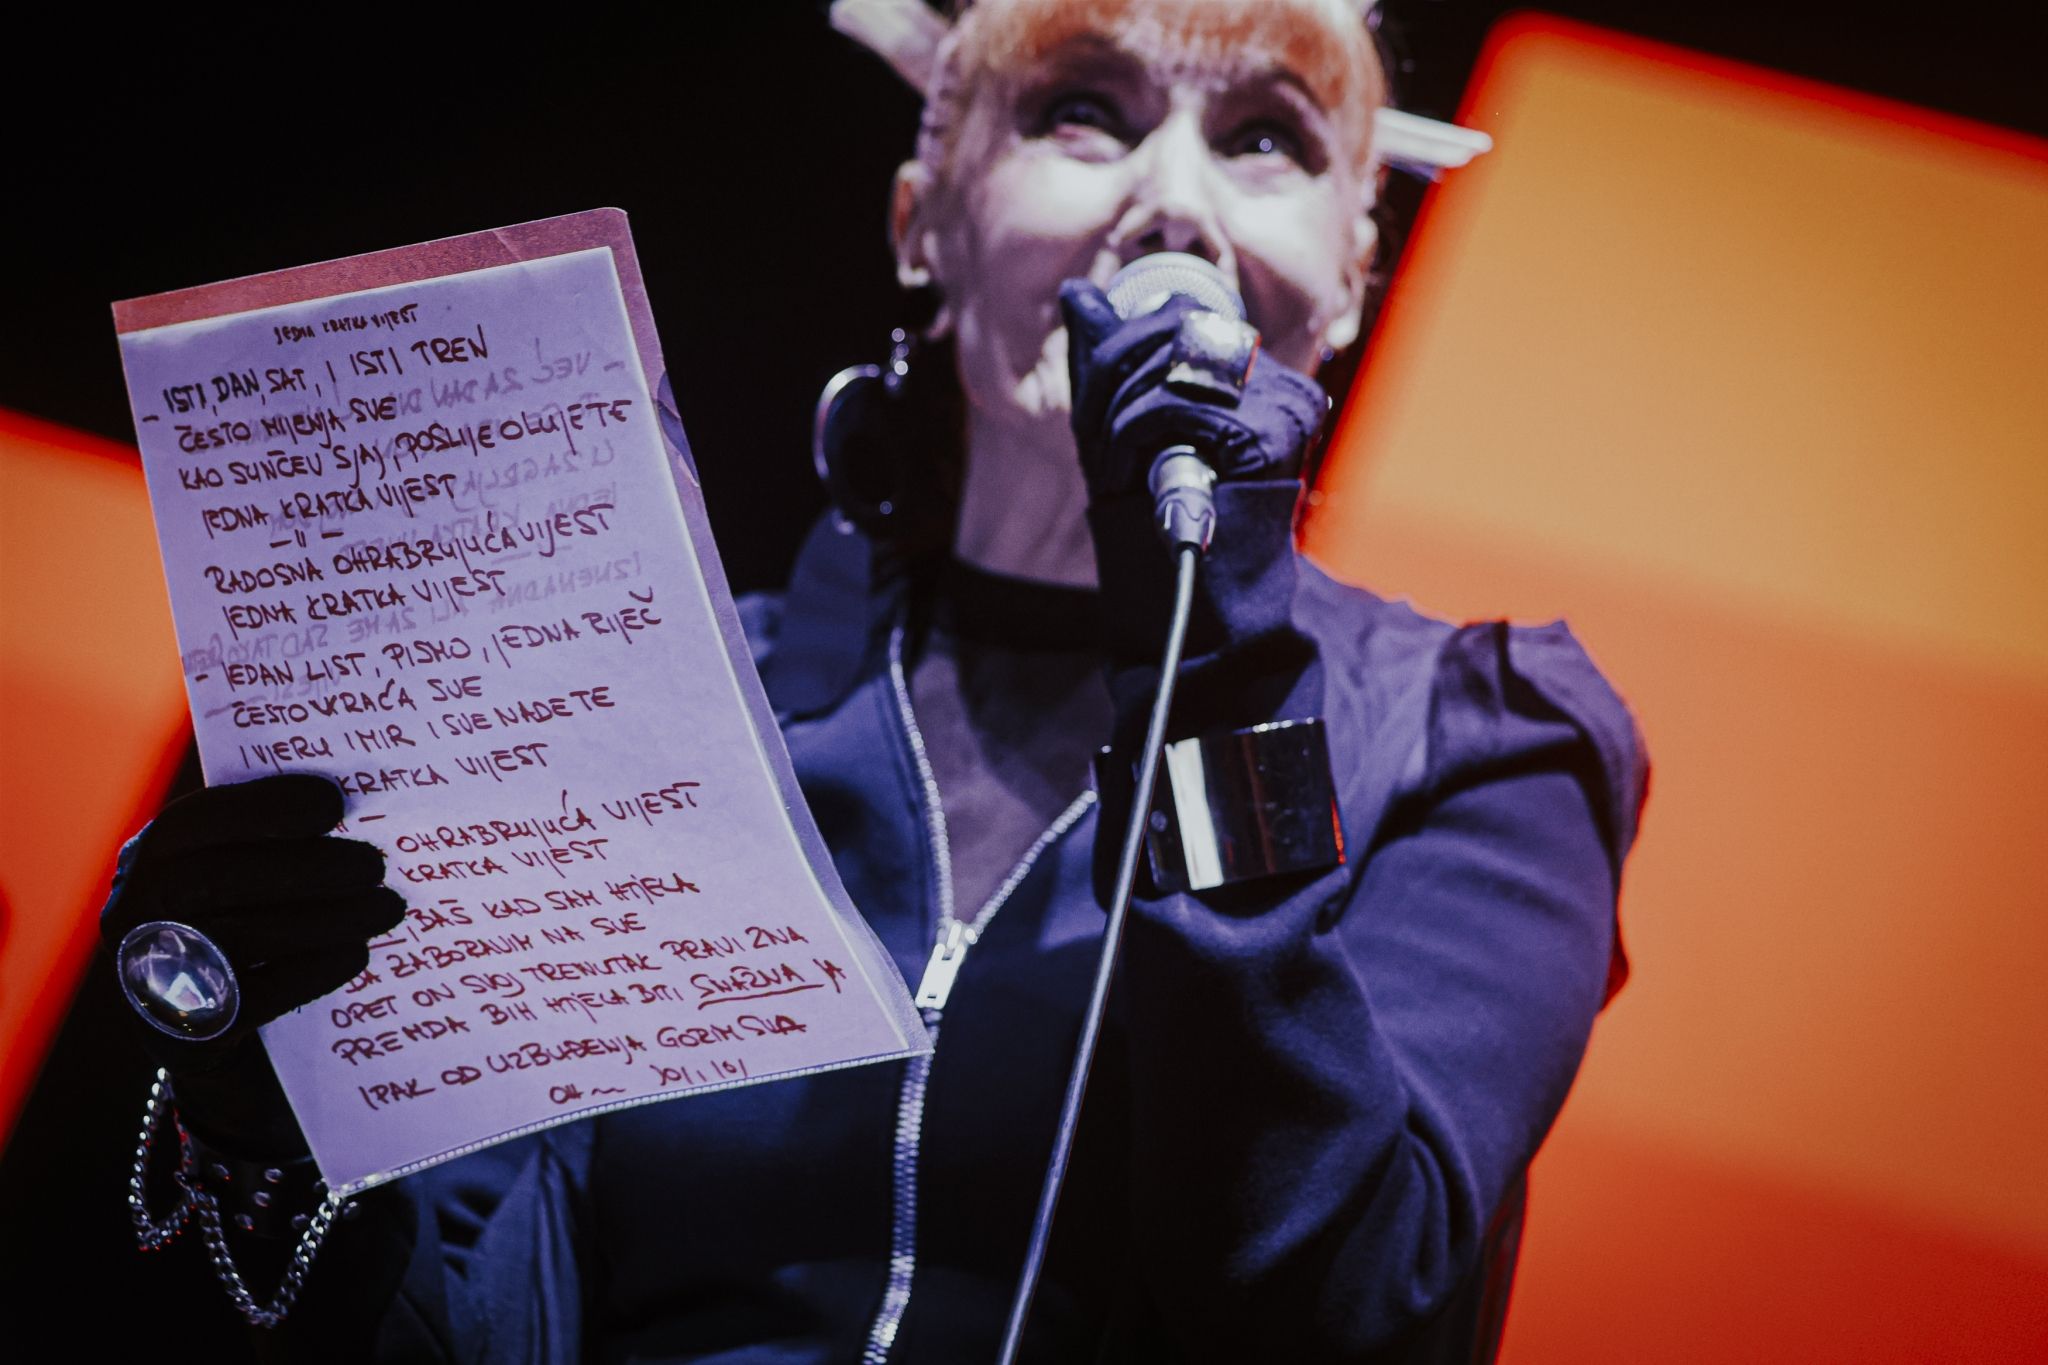 JEDNA KRATKA VIJEST
- ISTI, DAN, SAT, I ISTI TREN
ČESTO MIJENJA SVE
KAO SUNČEV SJAJ, POSLIJE OLUJE TE
JEDNA KRATKA VIJEST
- " -
RADOSNA OHRABRUJUĆA VIJEST
JEDNA KRATKA VIJEST
- JEDAN LIST, PISMO, JEDNA RIJEČ
ČESTO VRAĆA SVE
I VJERU I MIR I SVE NADE TE
KRATKA VIJEST
" -
OHRABRUJUĆA VIJEST
KRATKA VIJEST
, BAŠ KAD SAM HTJELA
DA ZABORAVIM NA SVE
OPET ON SVOJ TRENUTAK PRAVI ZNA
PREMDA BIH HTJELA BITI SNAŽNA JA
IPAK OD UZBUĐENJA GORIM SVA
OH ~